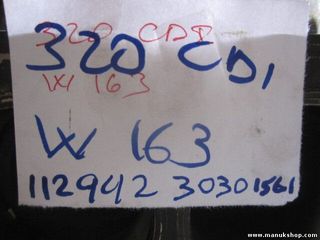 320 CDI
320 CDI
W 163
W 163
112942 30301561
www.manukshop.com